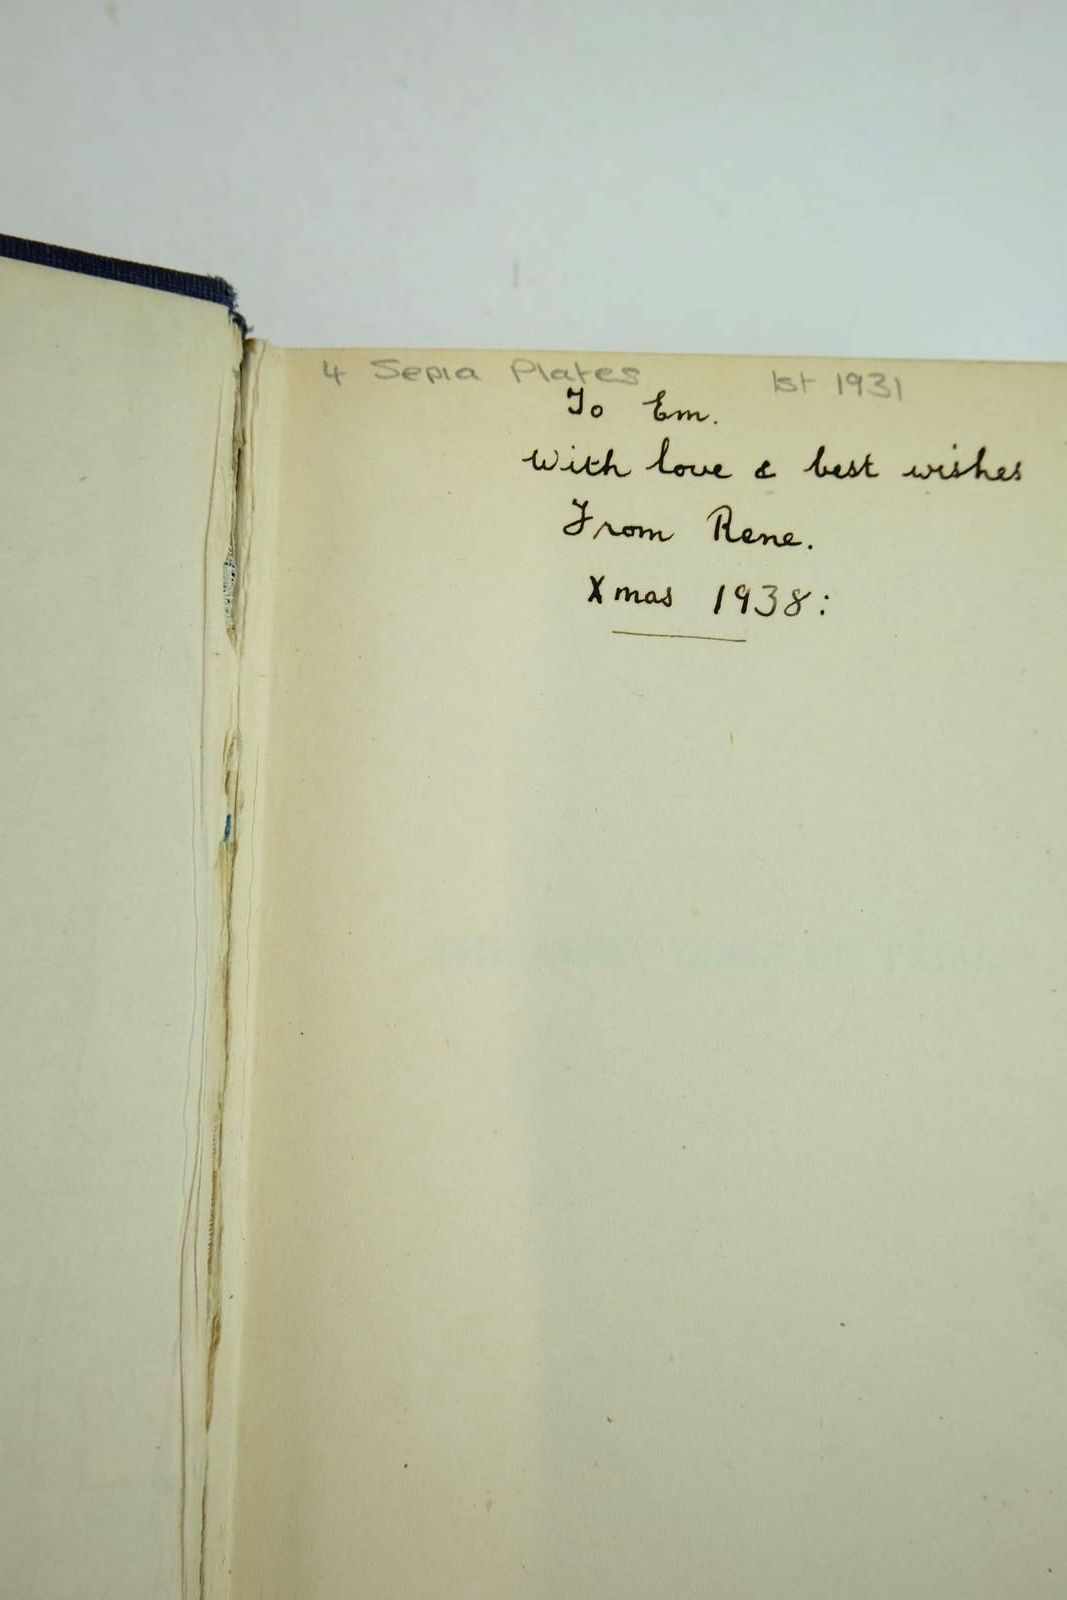 4 Sepia Plates 1st 1931
To Em.
With love & best wishes
From Rene.
Xmas 1938: